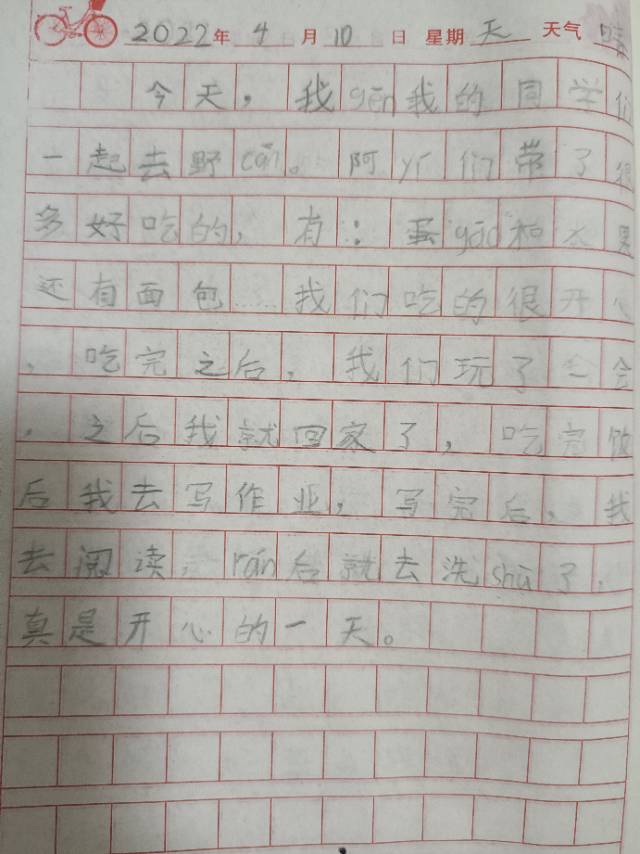 2022年4月10日 星期天 天气晴
今天，我gēn我的同学们
一起去野cān。阿yí们带了很
多好吃的，有：蛋gāo和水果
还有面包……我们吃的很开心
，吃完之后，我们玩了一会
，之后我就回家了，吃完饭
后我去写作业，写完后，我
去阅读，rán后就去洗shù了，
真是开心的一天。